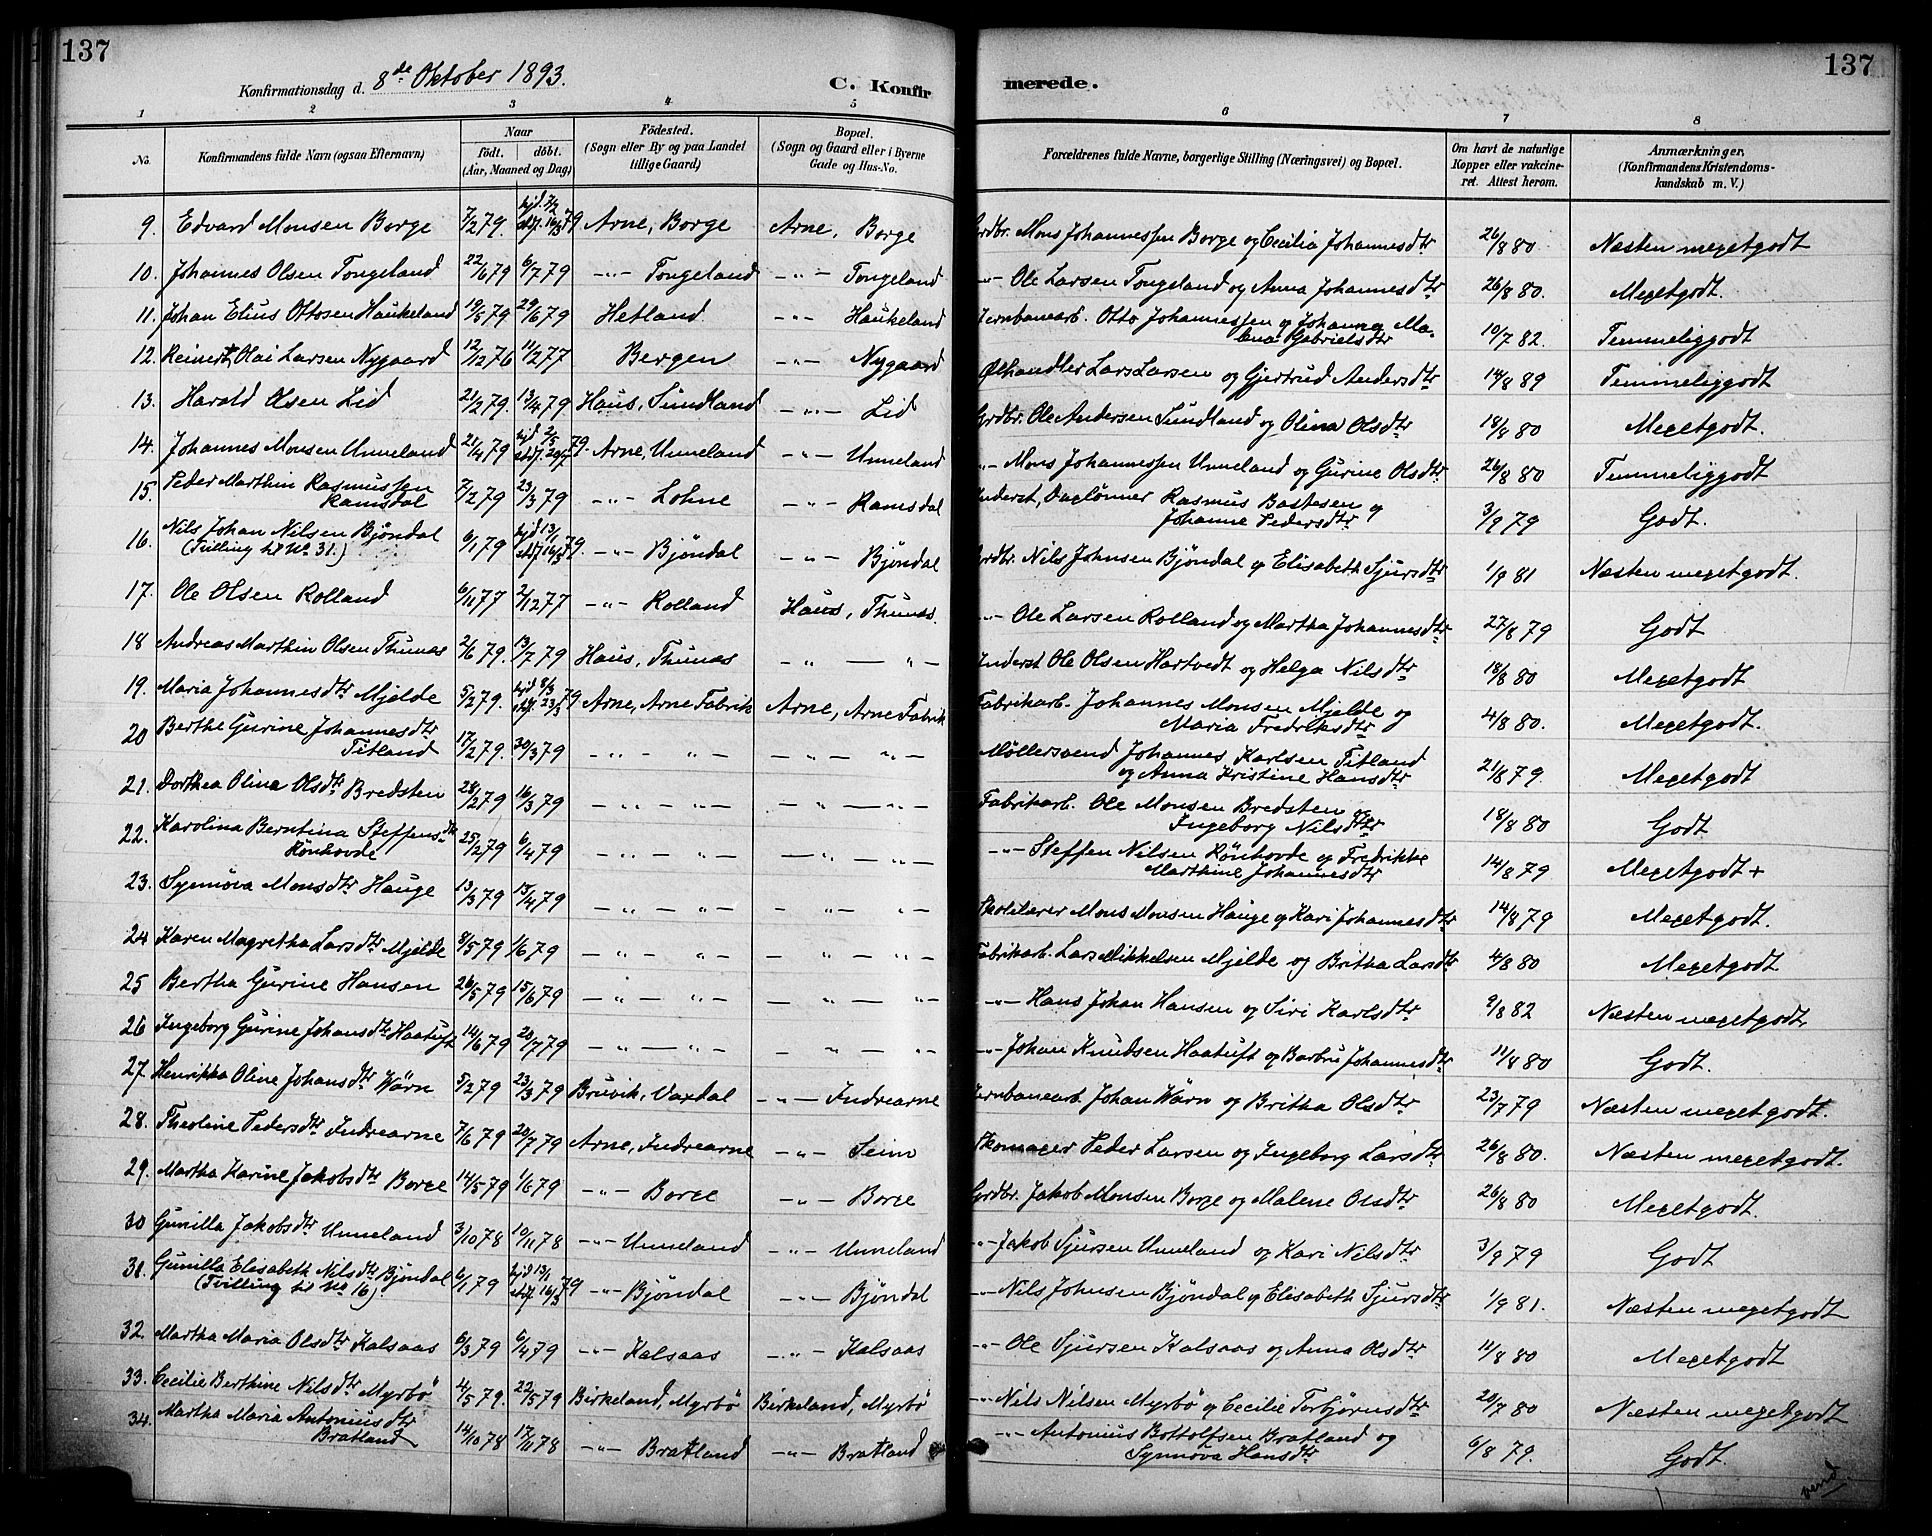 137
137
Konfirmationsdag d. 8de Oktober 1893.
C. Konfir
merede.
1 2 3 4 5 6 7 8
No.
Konfirmandens fulde Navn (ogsaa Efternavn)
Naar
födt. döbt.
(Aar, Maaned og Dag)
Födested.
(Sogn eller By og paa Landet
tillige Gaard)
Bopæl.
(Sogn og Gaard eller i Byerne
Gade og Hus-No.
Forældrenes fulde Navne, borgerlige Stilling (Næringsvei) og Bopæl.
Om havt de naturlige
Kopper eller vakcine-
ret. Attest herom.
Anmærkninger,
(Konfirmandens Kristendoms-
kundskab m. V.)
9. Edvard Monsen Borge 7/2 79. hjd. 2/2 stdf. 16/3 79 Arne, Borge Arne, Borge Grdbr. Mons Johannessen Borge og Cecilia Johannesdtr 26/8 80. Næsten megetgodt
10. Johannes Olsen Tongeland 22/6 79 6/7 79 -"- Tongeland -"- Tongeland -"- Ole Larsen Tongeland og Anna Johannesdtr 26/8 80. Megetgodt.
11. Johan Elius Ottosen Haukeland 19/5 79 29/6 79 Hetland -"- Haukeland Jernbanearb. Otto Johannessen og Johanna Ma-
lena Gabrielsdtr 10/7 82. Temmeliggodt
12. Reinert Olai Larsen Nygaard 12/12 76 11/2 77 Bergen -"- Nygaard Ølhandler Lars Larsen og Gjertrud Andersdtr 14/8 89 Temmeliggodt
13. Harald Olsen Lid 21/2 79. 13/4 79 Haus, Sundland -"- Lid Grdbr. Ole Andersen Sundland og Olina Olsdtr 18/8 80 Megetgodt.
14. Johannes Monsen Unneland 21/4 79 hjd 2/5 stdf. 20/7 79. Arne, Unneland -"- Unneland -"- Mons Johannessen Unneland og Gurine Olsdtr 26/8 80 Temmeliggodt
15. Peder Marthin Rasmussen
Ramsdal 7/2 79 23/3 79 -"- Lohne -"- Ramsdal Inderst, Daglønner Rasmus Bastesen og
Johanne Pedersdtr 3/9 79 Godt.
16. Nils Johan Nilsen Bjöndal
(Tvilling til No 31.) 6/1 79 hjd 13/1 stdf 16/3 79. -"- Bjöndal -"- Bjöndal Grdbr. Nils Johnsen Bjöndal og Elisabeth Sjursdtr 1/9 81 Næsten megetgodt.
17. Ole Olsen Rolland 6/11 77 2/12 77 -"- Rolland Haus, Thunæs. -"- Ole Larsen Rolland og Martha Johannesdtr 27/8 79 Godt
18 Andreas Marthin Olsen Thunæs 2/6 79. 13/7 79 Haus, Thunæs -"- -"- Inderst Ole Olsen Hartvedt og Helga Nilsdtr 18/8 80 Megetgodt
19. Maria Johannesdtr Mjelde 5/2 79. hjd 8/3 stdf 23/3 79 Arne, Arne Fabrik Arne, Arne Fabrik Fabrikarb. Johannes Monsen Mjelde og
Maria Fredriksdtr 4/8 80. Megetgodt.
20 Berthe Gurine Johannesdtr
Titland 17/2 79. 30/3 79 -"- -"- -"- -"- Møllersvend Johannes Karlsen Titland
og Anna Kristine Hansdtr 21/8 79. Megetgodt
21. Dorthea Olina Olsdtr Bredsten 28/2 79 16/3 79 -"- -"- -"- -"- Fabrikarb. Ole Monsen Bredsten og
Ingeborg Nilsdtr 18/8 80 Godt
22. Karolina Berntina Steffensdtr
Rönhovde 25/2 79 6/4 79 -"- -"- -"- -"- -"- Steffen Nilsen Rönhovde og Fredrikke
Marthine Johannesdtr 14/8 79 Megetgodt +
23. Synnöva Monsdtr Hauge 13/3 79 13/4 79 -"- -"- -"- -"- Skolelærer Mons Monsen Hauge og Kari Johannesdtr 14/8 79 Megetgodt.
24 Karen Magretha Larsdtr Mjelde 8/5 79 1/6 79 -"- -"- -"- -"- Fabrikarb. Lars Mikkelsen Mjelde og Britha Larsdtr 4/8 80 Megetgodt
25 Bertha Gurine Hansen 26/5 79 15/6 79 -"- -"- -"- -"- -"- Hans Johan Hansen og Siri Karlsdtr 9/8 82 Næsten megetgodt
26 Ingeborg Gurine Johansdtr Haatuft 14/6 79 20/7 79 -"- -"- -"- -"- -"- Johan Knudsen Haatuft og Barbru Johannesdtr 11/8 80 Godt.
27. Henrikka Oline Johansdtr Wärn 5/2 79 23/3 79 Bruvik, Vaxdal -"- Indrearne Jernbanearb. Johan Wärn og Britha Olsdtr 23/7 79 Næsten megetgodt.
28. Theoline Pedersdtr Indrearne 7/6 79 20/7 79 Arne, Indrearne -"- Seim Skomager Peder Larsen og Ingeborg Larsdtr 26/8 80. Næsten megetgodt.
29. Martha Karine Jakobsdtr Borge 14/5 79 1/6 79 -"- Borge -"- Borge Grdbr. Jakob Monsen Borge og Malene Olsdtr 26/8 80 Megetgodt.
30 Gunilla Jakobsdtr Unneland 3/10 78 10/11 78 -"- Unneland -"- Unneland -"- Jakob Sjursen Unneland og Kari Nilsdtr 3/9 79 Godt
31. Gunilla Elisabeth Nilsdtr Bjöndal
(Tvilling til No 16). 6/1 79 hjd 13/1 stdf 16/3 79 -"- Bjöndal -"- Bjöndal -"- Nils Johnsen Bjöndal og Elisabeth Sjursdtr 1/9 81. Næsten megetgodt
32. Martha Maria Olsdtr Kalsaas 6/3 79 6/4 79 -"- Kalsaas -"- Kalsaas -"- Ole Sjursen Kalsaas og Anna Olsdtr 11/8 80 Megetgodt
33. Cecilie Berthine Nilsdtr Myrbö 4/5 79. 22/5 79 Birkeland, Myrbö Birkeland, Myrbö -"- Nils Nilsen Myrbö og Cecilie Torbjörnsdtr 20/7 80 Næsten megetgodt
34. Martha Maria Antoniusdtr
Bratland 14/10 78 17/11 78 -"- Bratland -"- Bratland -"- Antonius Bottolfsen Bratland og
Synnöva Hansdtr 6/8 79. Godt.
vend.